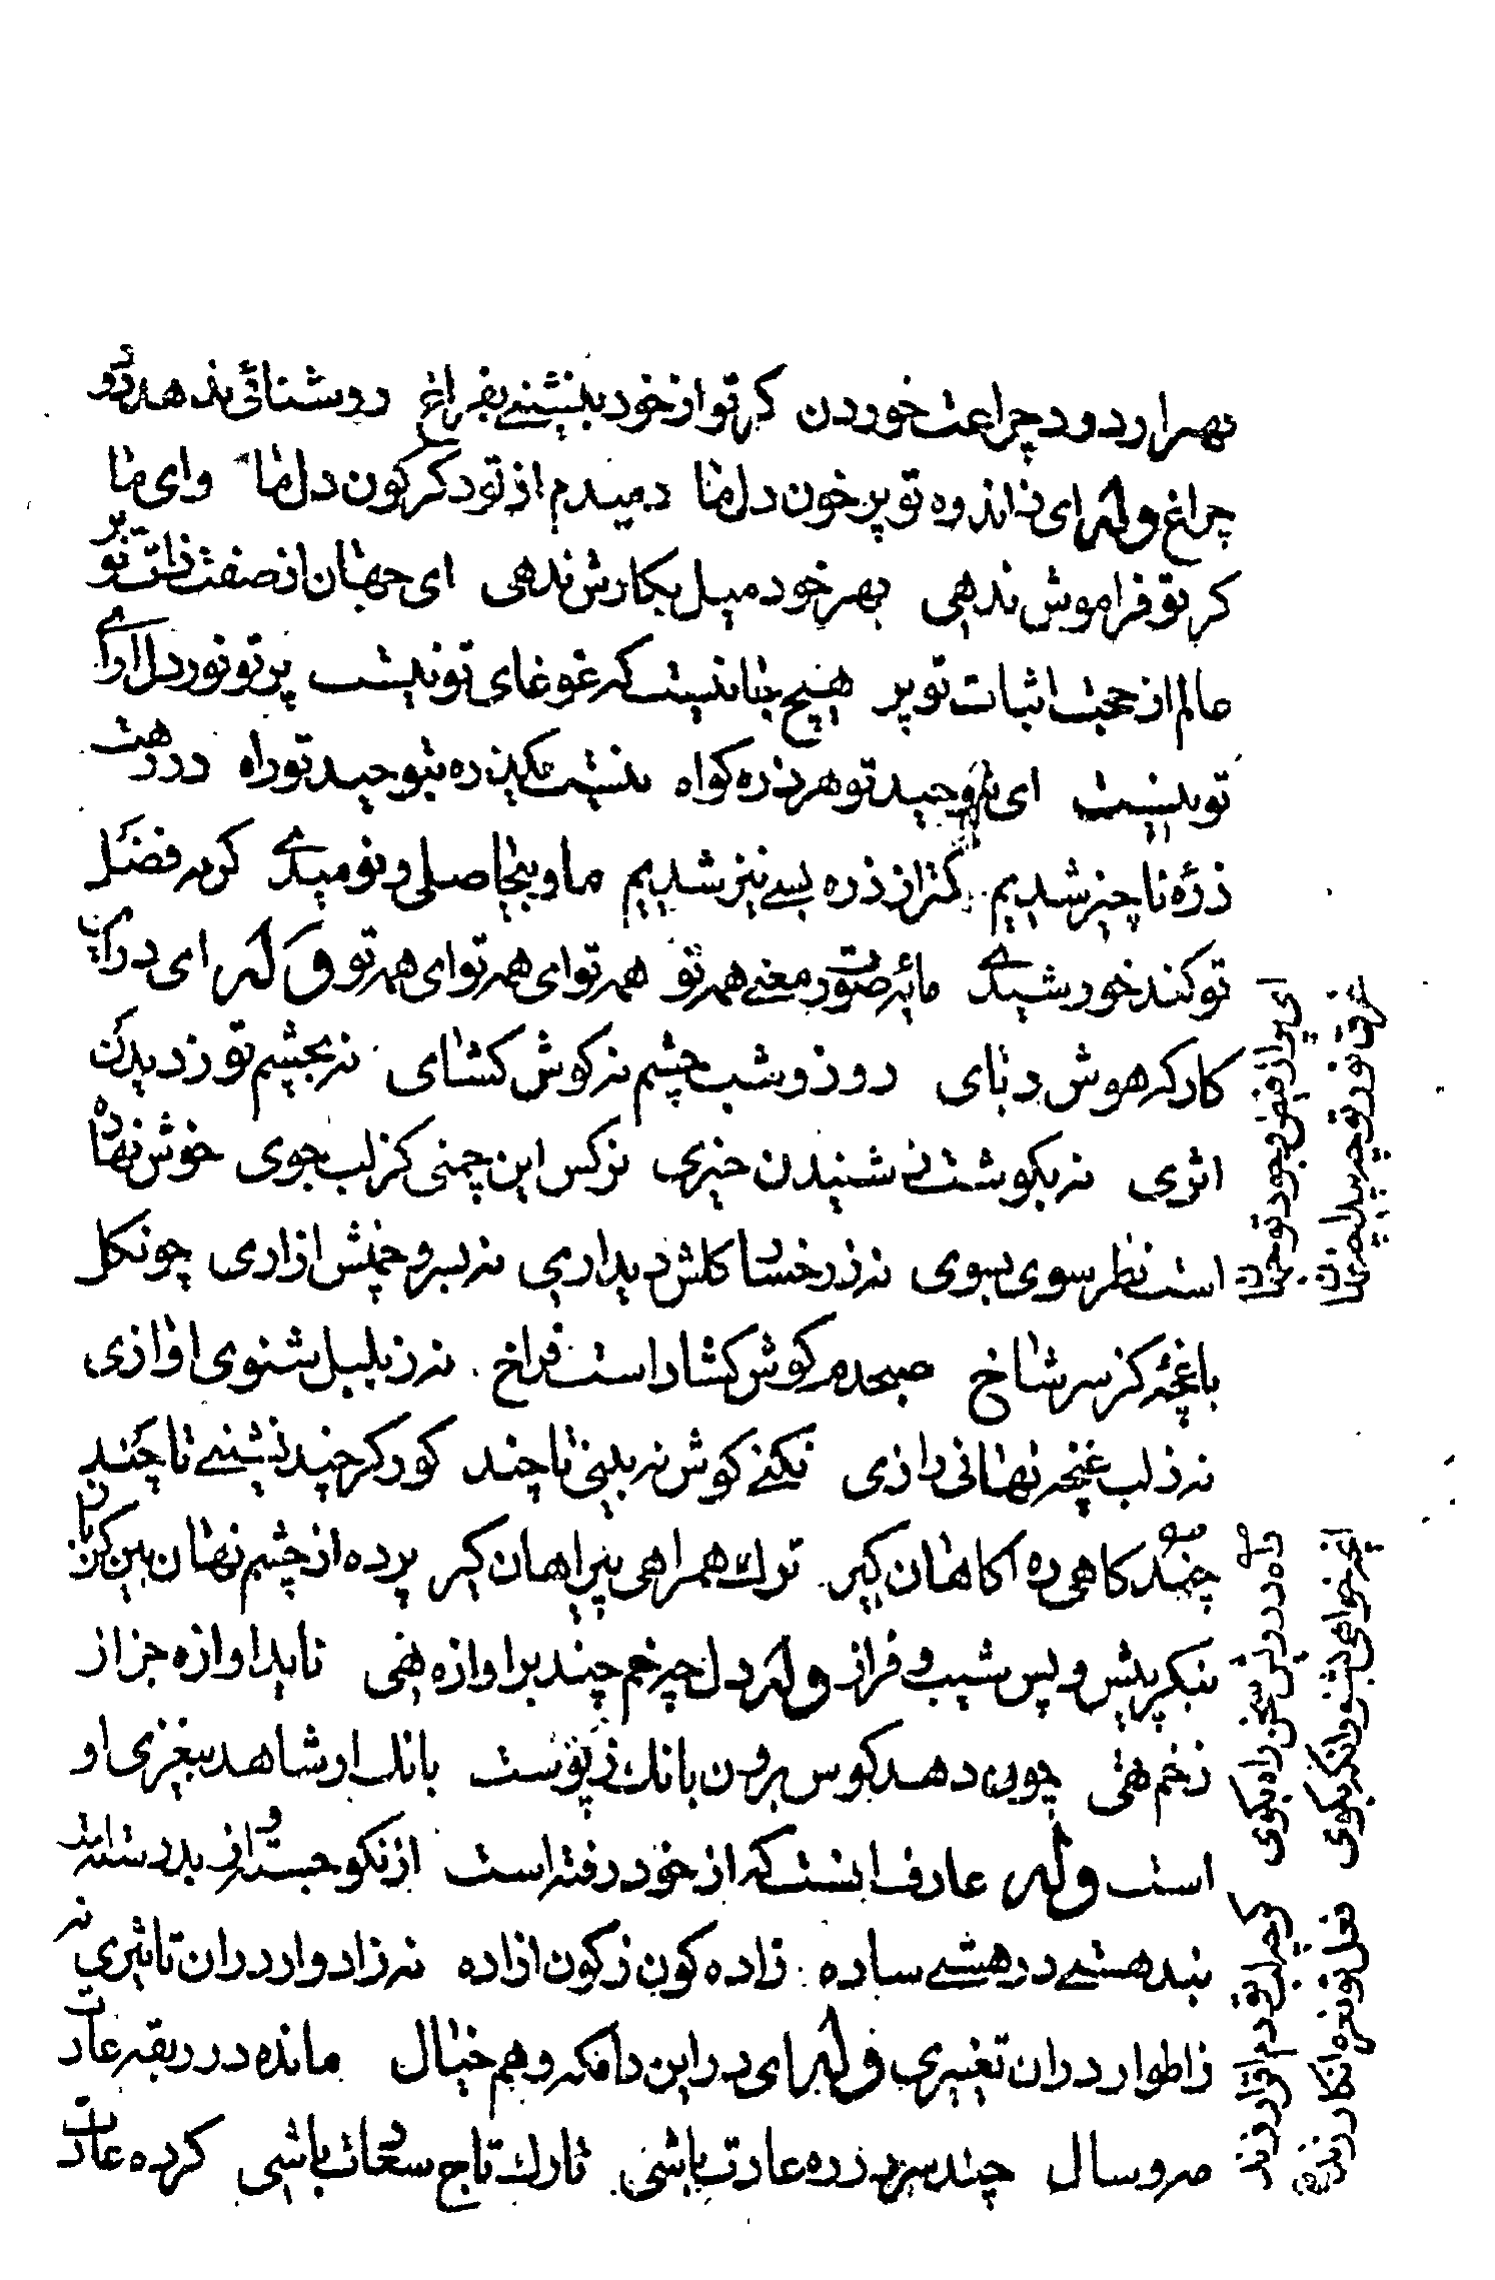 بهر ارد دود چراغت خوردن کر تو از خود بنشینی بفراغ روشنائی ندهد دود
چراغ وله ای ز اندوه تو پر خون دل ما دمبدم از تو دکرکون دل ما وای ما
کر تو فراموش ندهی بهر خود میل بکارش ندهی ای جهان از صفت ذات تو پر
عالم از حجت اثبات تو پر هیچ جا نیست که غوغای تو نیست پرتو نور دل ارای
تو نیست ای بتوحید تو هر ذره کواه نیست یکذره بتوحید تو راه در رهت
ذرهٔ ناچیز شدیم کمتر از ذره بسی نیز شدیم ما و بیحاصلی و نومیدی کر نه فضل
تو کند خورشیدی مایهٔ صورت و معنی همه تو همه تو ای همه تو ای همه تو وله ای درین
کارکه هوش ربای روز و شب چشم نه کوش کشای نه بچشم تو ز دیدن
اثری نه بکوشت ز شنیدن خبری نرکس این چمنی کز لب جوی خوش نهاده
است نظر سوی بسوی نه ز رخسار کلش دیداری نه بسرو چمنش ازاری چون کل
باغچهٔ کز سر شاخ صبحدم کوش کشاد است فراخ نه ز بلبل شنوی اوازی
نه ز لب غنچه نهانی رازی نکنی کوش نه بینی تا چند کور کر چند نشینی تا چند
چند کاهی ره اکاهان کیر ترك همراهی بیراهان کیر پرده از چشم نهان بین کن باز
بنکر پیش و پس شیب و فراز وله دل چه خم چند بر اوازه نهی ناید اوازه جز از
زخم تهی چون دهد کوس برون بانك ز پوست بانك او شاهد بیمغزی او
است وله عارف انست که از خود رفته است از نکو جسته و از بد رسته است
بند هستی در هستی ساده زادهٔ کون ز کون ازاده نه ز ادوار در ان تاثیری نه
ز اطوار در ان تغییری وله ای درین دامکه وهم خیال مانده در ربقه عادت
مه و سال چند سر بر زده عادت باشی تارك تاج سعادت باشی کرده عادت
ای پر از فیض وجود تو جهان
غرق نور تو چه پیدا چه نهان
کاه در راستی سخن راه بکوی
پند خواهی بشنو وانکه بکوی
کر چه لبت دم اقرار زند
فعل تو نعرهٔ انکار زند